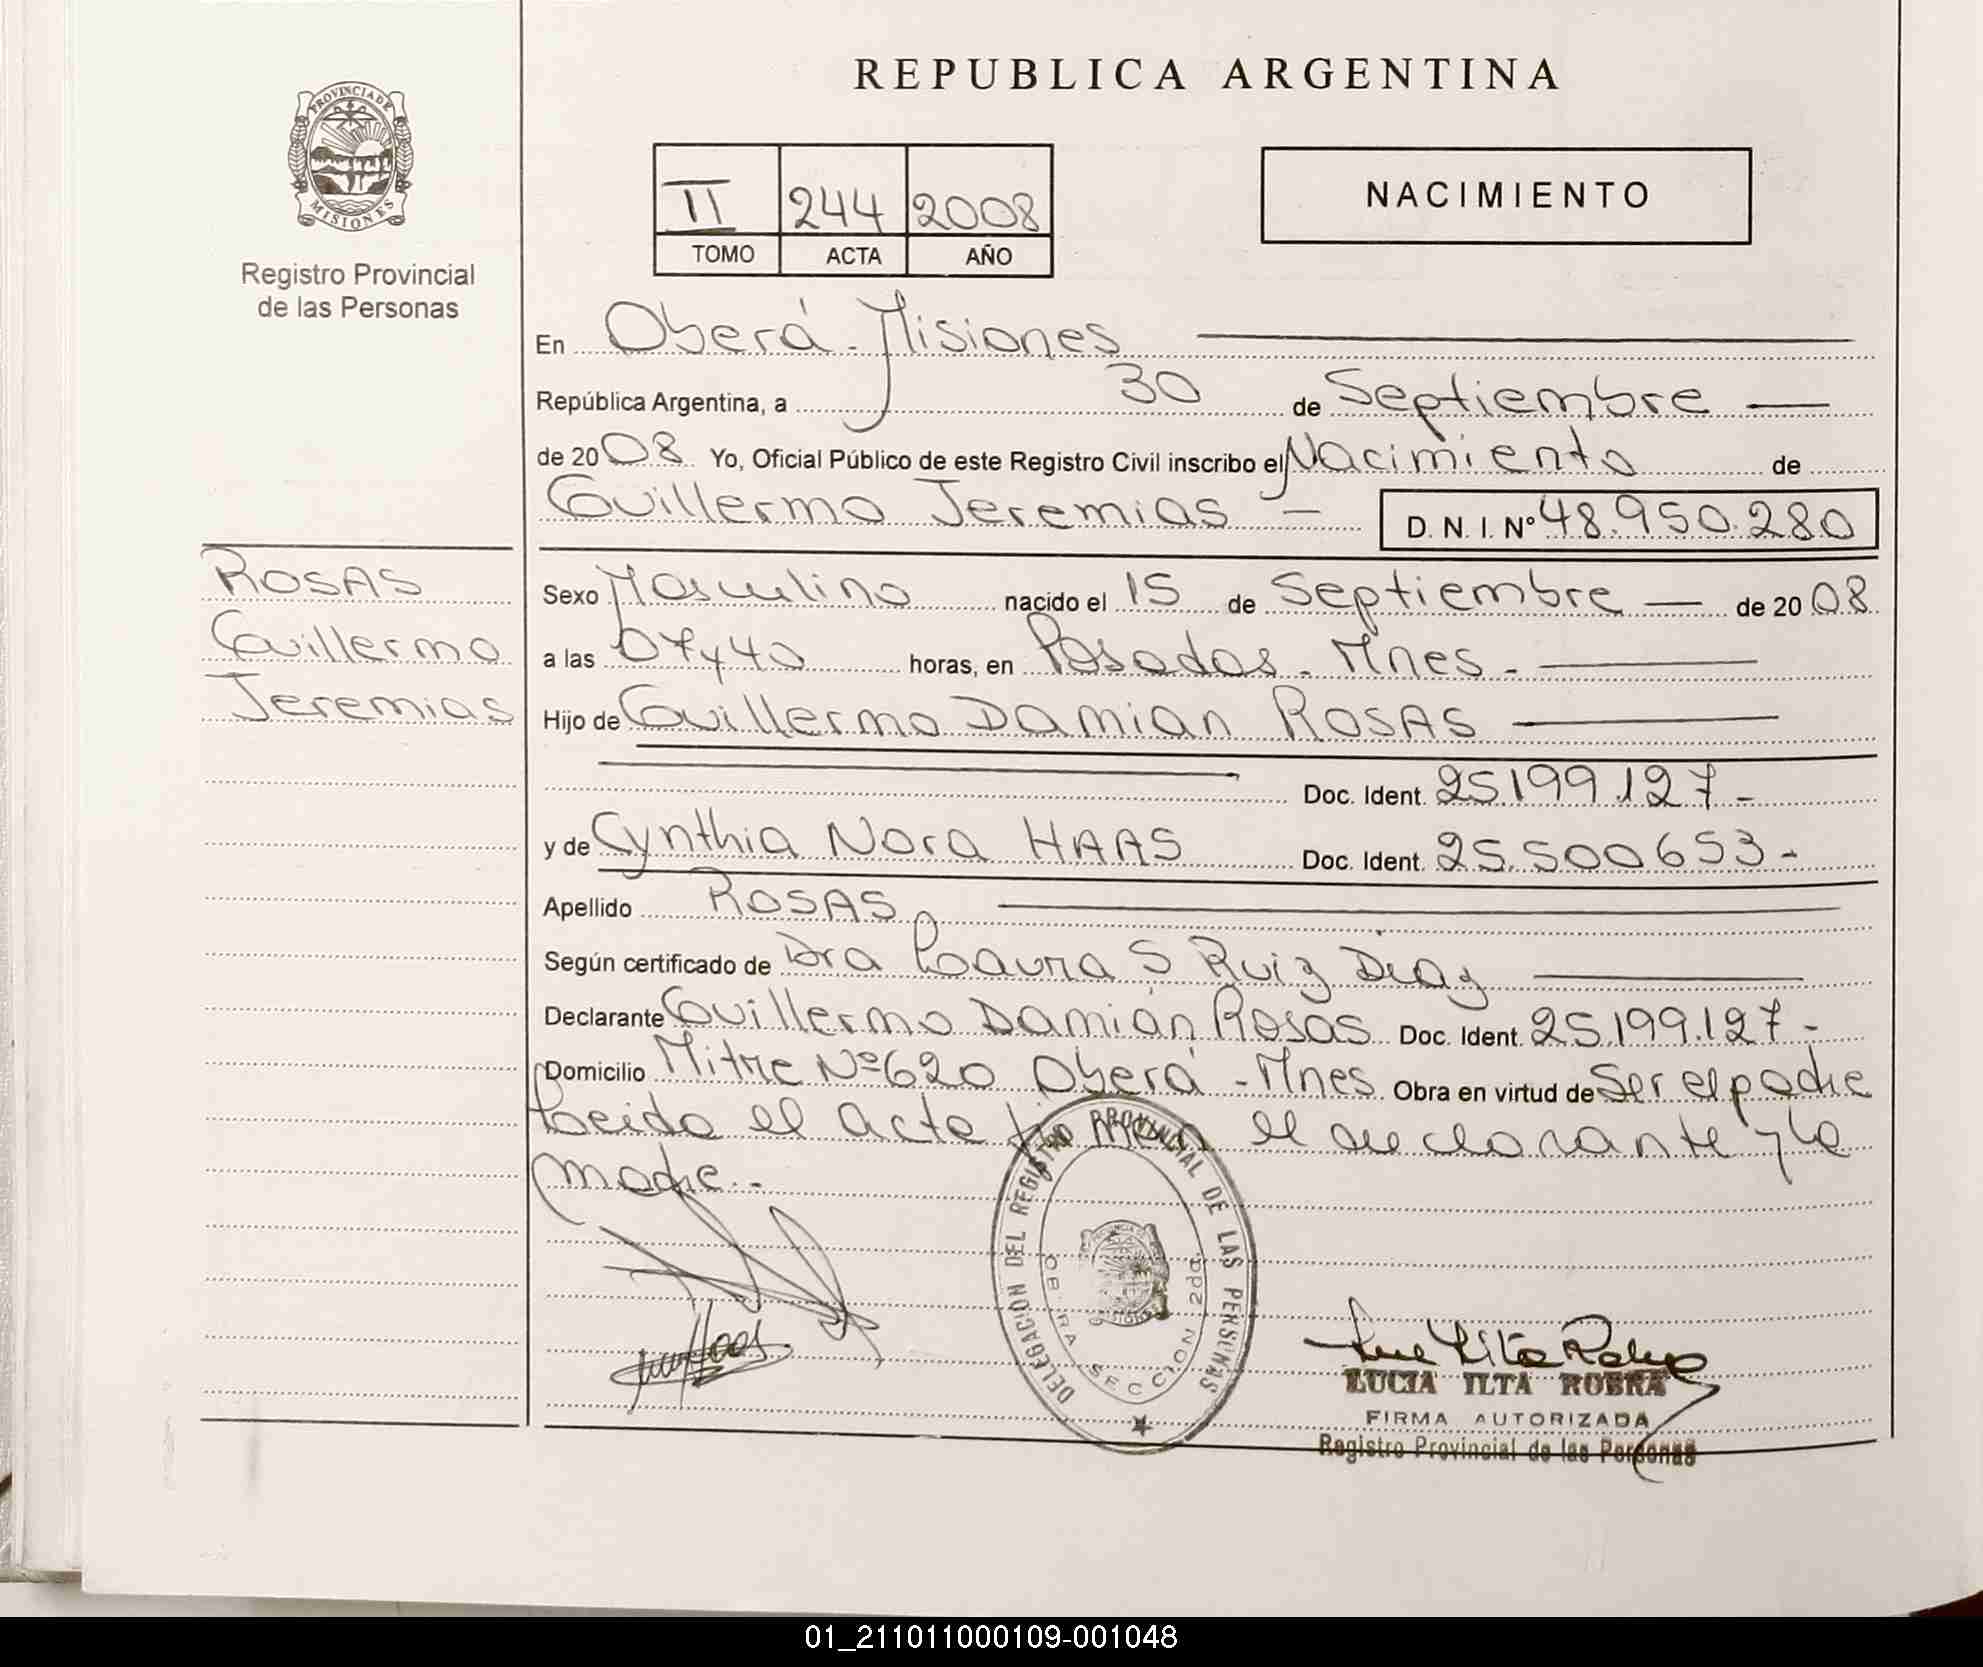 REPUBLICA ARGENTINA
PROVINCIA DE
MISIONES
Registro Provincial
de las Personas
II 244 2008
TOMO ACTA AÑO
NACIMIENTO
En Oberá - Misiones
República Argentina, a 30 de Septiembre
de 2008 Yo, Oficial Público de este Registro Civil inscribo el Nacimiento de
Guillermo Jeremias - D. N. I. Nº 48.950.280
ROSAS
Guillermo
Jeremias
Sexo Masculino nacido el 15 de Septiembre de 2008
a las 07y40 horas, en Posadas - Mnes -
Hijo de Guillermo Damian ROSAS
Doc. Ident. 25.199.127 -
y de Cynthia Nora HAAS Doc. Ident. 25.500653 -
Apellido ROSAS
Según certificado de Dra Laura S Ruiz Diaz
Declarante Guillermo Damián Rosas Doc. Ident. 25.199.127 -
Domicilio Mitre Nº 620 Oberá - Mnes Obra en virtud de Ser el padre
Leida el acta firman el declarante y la
madre -
DELEGACION DEL REGISTRO PROVINCIAL DE LAS PERSONAS
OBERA SECCION 2da.
Haas
LUCIA ILTA ROBRA
FIRMA AUTORIZADA
Registro Provincial de las Personas
01_211011000109-001048